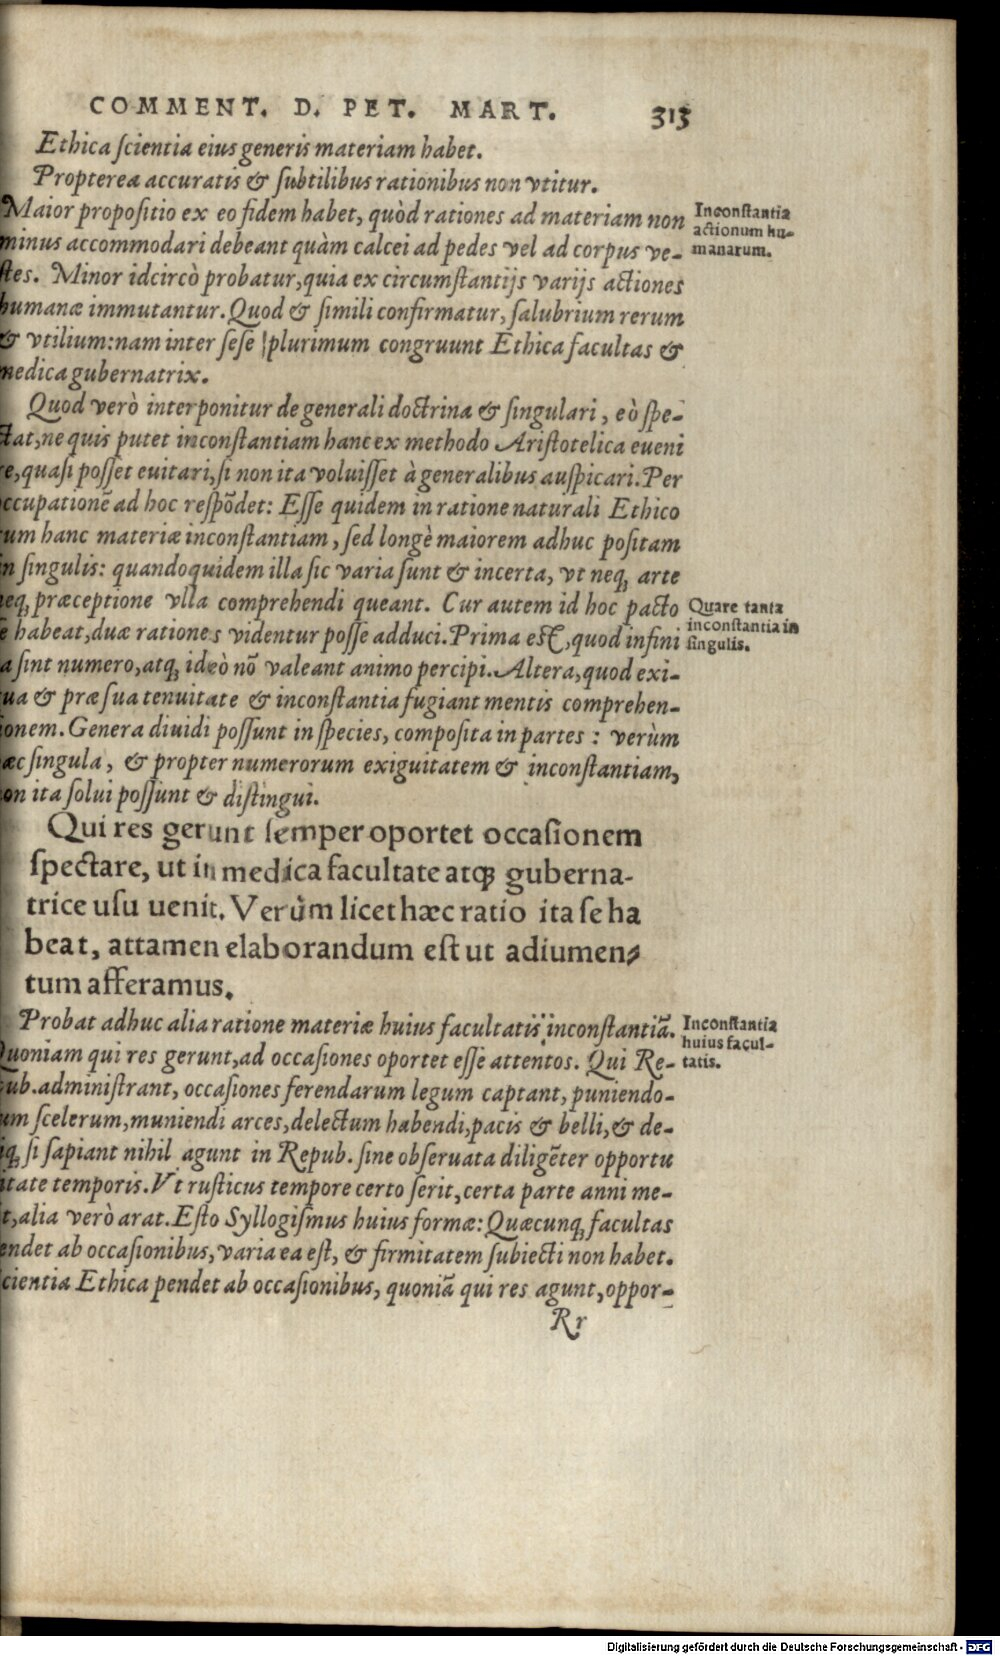 COMMENT. D. PET. MART. 313
Ethica scientia eius generis materiam habet.
Propterea accuratis & subtilibus rationibus non vtitur.
Maior propositio ex eo fidem habet, quòd rationes ad materiam non
minus accommodari debeant quàm calcei ad pedes vel ad corpus ve-
stes. Minor idcircò probatur, quia ex circumstantijs varijs actiones
humanæ immutantur. Quod & simili confirmatur, salubrium rerum
& vtilium: nam inter sese plurimum congruunt Ethica facultas &
medica gubernatrix.
Inconstantia
actionum hu-
manarum.
Quod verò interponitur de generali doctrina & singulari, eò spe-
ctat, ne quis putet inconstantiam hanc ex methodo Aristotelica eueni
re, quasi posset euitari, si non ita voluisset à generalibus auspicari. Per
occupationē ad hoc respōdet: Esse quidem in ratione naturali Ethico
rum hanc materiæ inconstantiam, sed longè maiorem adhuc positam
in singulis: quandoquidem illa sic varia sunt & incerta, vt neq; arte
neq; præceptione vlla comprehendi queant. Cur autem id hoc pacto
se habeat, duæ rationes videntur posse adduci. Prima est, quod infini
ta sint numero, atq; ideò nō valeant animo percipi. Altera, quod exi-
gua & præ sua tenuitate & inconstantia fugiant mentis comprehen-
sionem. Genera diuidi possunt in species, composita in partes: verùm
hæc singula, & propter numerorum exiguitatem & inconstantiam,
non ita solui possunt & distingui.
Quare tanta
inconstantia in
singulis.
Qui res gerunt semper oportet occasionem
spectare, ut in medica facultate atq; guberna-
trice usu uenit. Verùm licet hæc ratio ita se ha
beat, attamen elaborandum est ut adiumen-
tum afferamus.
Probat adhuc alia ratione materiæ huius facultatis inconstantiā.
Quoniam qui res gerunt, ad occasiones oportet esse attentos. Qui Re-
pub. administrant, occasiones ferendarum legum captant, puniendo-
rum scelerum, muniendi arces, delectum habendi, pacis & belli, & de-
niq; si sapiant nihil agunt in Repub. sine obseruata diligēter opportu
nitate temporis. Vt rusticus tempore certo serit, certa parte anni me-
tit, alia verò arat. Esto Syllogismus huius formæ: Quæcunq; facultas
pendet ab occasionibus, varia ea est, & firmitatem subiecti non habet.
Scientia Ethica pendet ab occasionibus, quoniā qui res agunt, oppor-
Inconstantia
huius facul-
tatis.
Rr
Digitalisierung gefördert durch die Deutsche Forschungsgemeinschaft - DFG